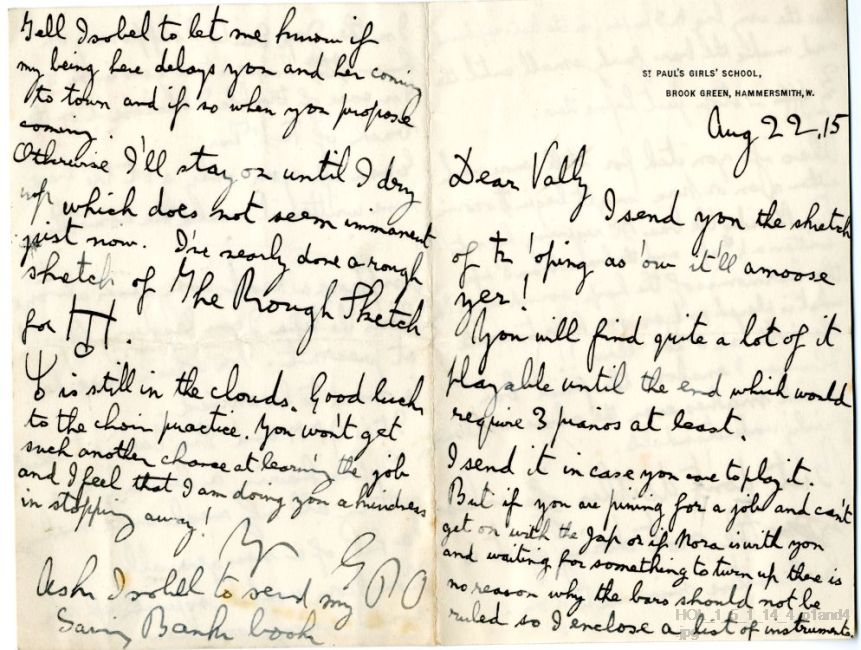 St PAUL'S GIRLS' SCHOOL,
BROOK GREEN, HAMMERSMITH, W.
Aug 22, 15
Dear Vally
I send you the sketch
of ♃ 'oping as 'ow it'll amoose
yer!
You will find quite a lot of it
playable until the end which would
require 3 pianos at least.
I send it in case you care to play it.
But if you are pining for a job and can't
get on with the Jap or if Nora is with you
and waiting for something to turn up there is
no reason why the bars should not be
ruled so I enclose a list of instruments.
Tell Isobel to let me know if
my being here delays you and her coming
to town and if so when you propose
coming.
Otherwise I'll stay on until I dry
up which does not seem immanent
just now. I've nearly done a rough
sketch of The Rough Sketch
for
is still in the clouds. Good luck
to the choir practice. You won't get
such another chance at learning the job
and I feel that I am doing you a kindness
in stopping away!
Yr G
PTO
Ask Isobel to send my
Saving Bank book
HOL_1_5_1_14_4_p1and4
.jpg